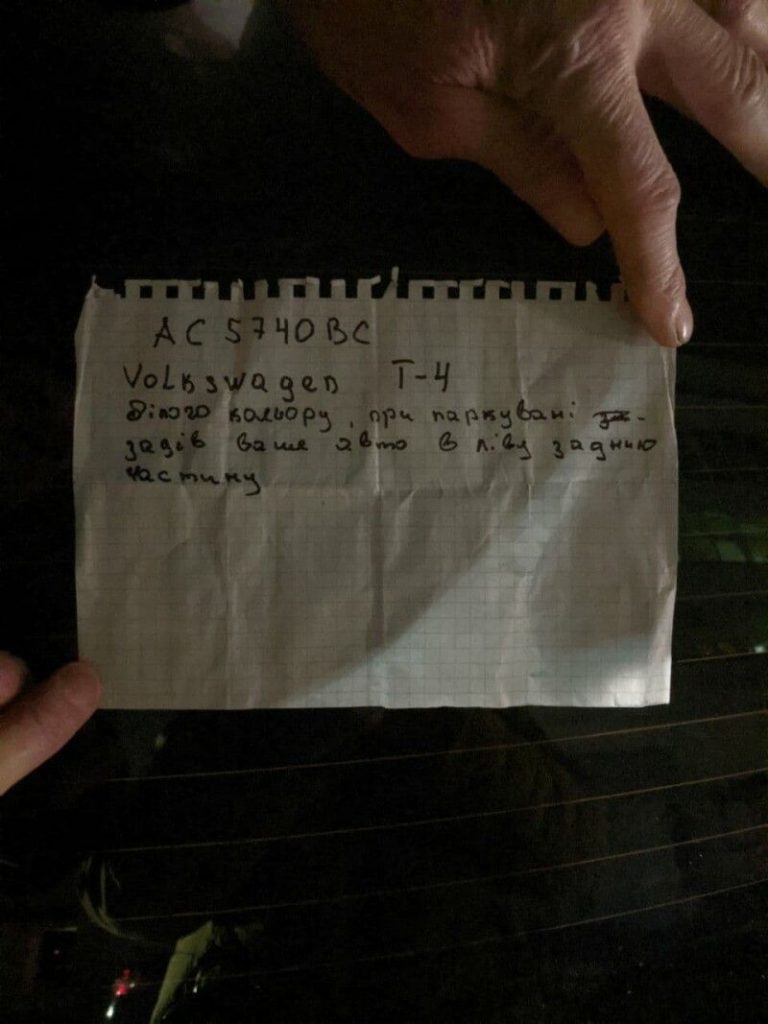 АС 5740 ВС
Volkswagen T-4
білого кольору, при паркувані за-
задів ваше авто в ліву заднию
частину